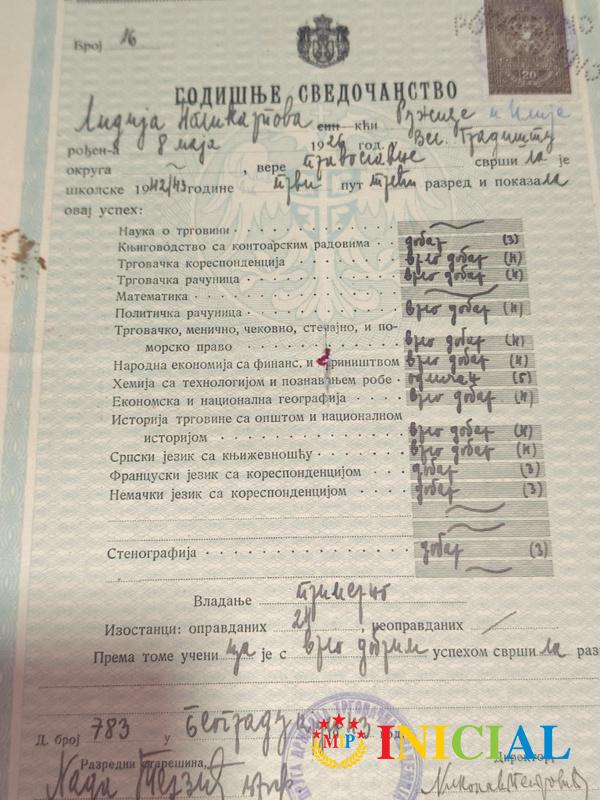 Број 16
20
ГОДИШЊЕ СВЕДОЧАНСТВО
Лидија син кћи Ружице и Илије
рођен-а 8 маја 1926 год. Вел. Градишту
округа ~, вере православне сврши ла је
школске 1942/43 године први пут трећи разред и показала
овај успех:
Наука о трговини
Књиговодство са контоарским радовима добар (3)
Трговачка кореспонденција врло добар (4)
Трговачка рачуница врло добар (4)
Математика
Политичка рачуница врло добар (4)
Трговачко, менично, чековно, стечајно, и по-
морско право врло добар (4)
Народна економија са финанс. и цариништвом врло добар (4)
Хемија са технологијом и познавањем робе одличан (5)
Економска и национална географија врло добар (4)
Историја трговине са општом и националном
историјом врло добар (4)
Српски језик са књижевношћу врло добар (4)
Француски језик са кореспонденцијом добар (3)
Немачки језик са кореспонденцијом добар (3)
Стенографија добар (3)
Владање примерно
Изостанци: оправданих 24 неоправданих /
Према томе учени ца је с врло добрим успехом сврши ла раз
Д. број 783 у Београду
MP INICIAL
Разредни старешина, Директор
Нада